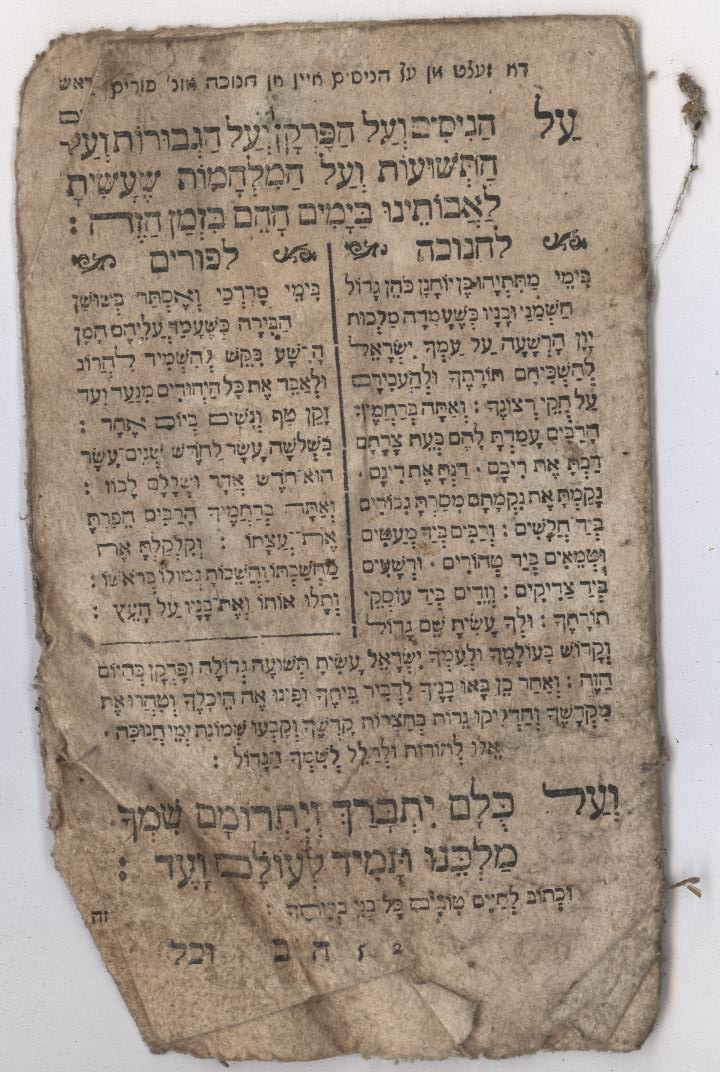 דא זעצט מן על הניסים איין אן חנוכה אונ' פורים ראש
ים
עַל הַנִיסִים וְעַל הַפָּרְקָן וְעַל הַגְבוּרוֹת וְעַל
הַתְּשׁוּעוֹת וְעַל הַמִלְחָמוֹת שֶׁעָשִׂיתָ
לַאֲבוֹתֵינוּ בַּיָמִים הָהֵם בַּזְמַן הַזֶה :
לחנוכה
בִּימֵי מַתִּתְיָהוּ בֶּן יוֹחָנָן כֹּהֵן גָדוֹל
חַשְׁמֻנַי וּבָנָיו כְּשֶׁעָמְדָה מַלְכוּת
יָוָן הָרְשָׁעָה עַל עַמְךָ יִשְׂרָאֵל
לְהַשְׁכִּיחָם תּוֹרָתֶךָ וּלְהַעֲבִירָם
עַל חֻקֵי רְצוֹנֶךָ : וְאַתָּה בְּרַחֲמֶיךָ
הָרַבִּים עָמַדְתָּ לָהֶם בְּעֵת צָרָתָם
רַבְתָּ אֶת רִיבָם · דַנְתָּ אֶת דִינָם ·
נָקַמְתָּ אֶת נִקְמָתָם מָסַרְתָּ גִבּוֹרִים
בְּיַד חַלָשִׁים : וְרַבִּים בְּיַד מְעַטִים
וּטְמֵאִים בְּיַד טְהוֹרִים · וּרְשָׁעִים
בְּיַד צַדִיקִים : וְזֵדִים בְּיַד עוֹסְקֵי
תוֹרָתֶךָ : וּלְךָ עָשִׂיתָ שֵׁם גָדוֹל
לפורים
בִּימֵי מָרְדְכַי וְאֶסְתֵּר בְּשׁוּשַׁן
הַבִּירָה כְּשֶׁעָמַד עֲלֵיהֶם הָמָן
הָרָשָׁע בִּקֵשׁ לְהַשְׁמִיד לַהֲרוֹג
וּלְאַבֵּד אֶת כָּל הַיְהוּדִים מִנַעַר וְעַד
זָקֵן טַף וְנָשִׁים בְּיוֹם אֶחָד :
בִּשְׁלֹשָׁה עָשָׂר לְחוֹדֶשׁ שְׁנֵים עָשָׂר
הוּא חֹדֶשׁ אֲדָר וּשְׁלָלָם לָבוֹז :
וְאַתָּה בְּרַחֲמֶיךָ הָרַבִּים הֵפַרְתָּ
אֶת עֲצָתוֹ : וְקִלְקַלְתָּ אֶת
מַחֲשַׁבְתּוֹ וַהֲשֵׁבוֹתָ גְמוּלוֹ בְּרֹאשׁוֹ :
וְתָלוּ אוֹתוֹ וְאֶת בָּנָיו עַל הָעֵץ :
וְקָדוֹשׁ בְּעוֹלָמֶךָ וּלְעַמְךָ יִשְׂרָאֵל עָשִׂיתָ תְּשׁוּעָה גְדוֹלָה וּפֻרְקָן כְּהַיוֹם
הַזֶה : וְאַחַר כֵּן בָּאוּ בָנֶיךָ לִדְבִיר בֵּיתֶךָ וּפִינוּ אֶת הֵיכָלֶךָ וְטִהֲרוּ אֶת
מִקְדָשֶׁךָ וְהִדְלִיקוּ נֵרוֹת בְּחַצְרוֹת קָדְשֶׁךָ וְקָבְעוּ שְׁמוֹנַת יְמֵי חֲנוּכָּה ·
אֵלוּ לְהוֹדוֹת וּלְהַלֵל לְשִׁמְךָ הַגָדוֹל :
וְעַל כֻּלָם יִתְבָּרַךְ וְיִתְרוֹמַם שִׁמְךָ
מַלְכֵּנוּ תָּמִיד לְעוֹלָם וָעֶד :
וּכְתוֹב לְחַיִים טוֹבִים כָּל בְּנֵי בְרִיתֶךָ :
זה
2 5 ה ב וכל